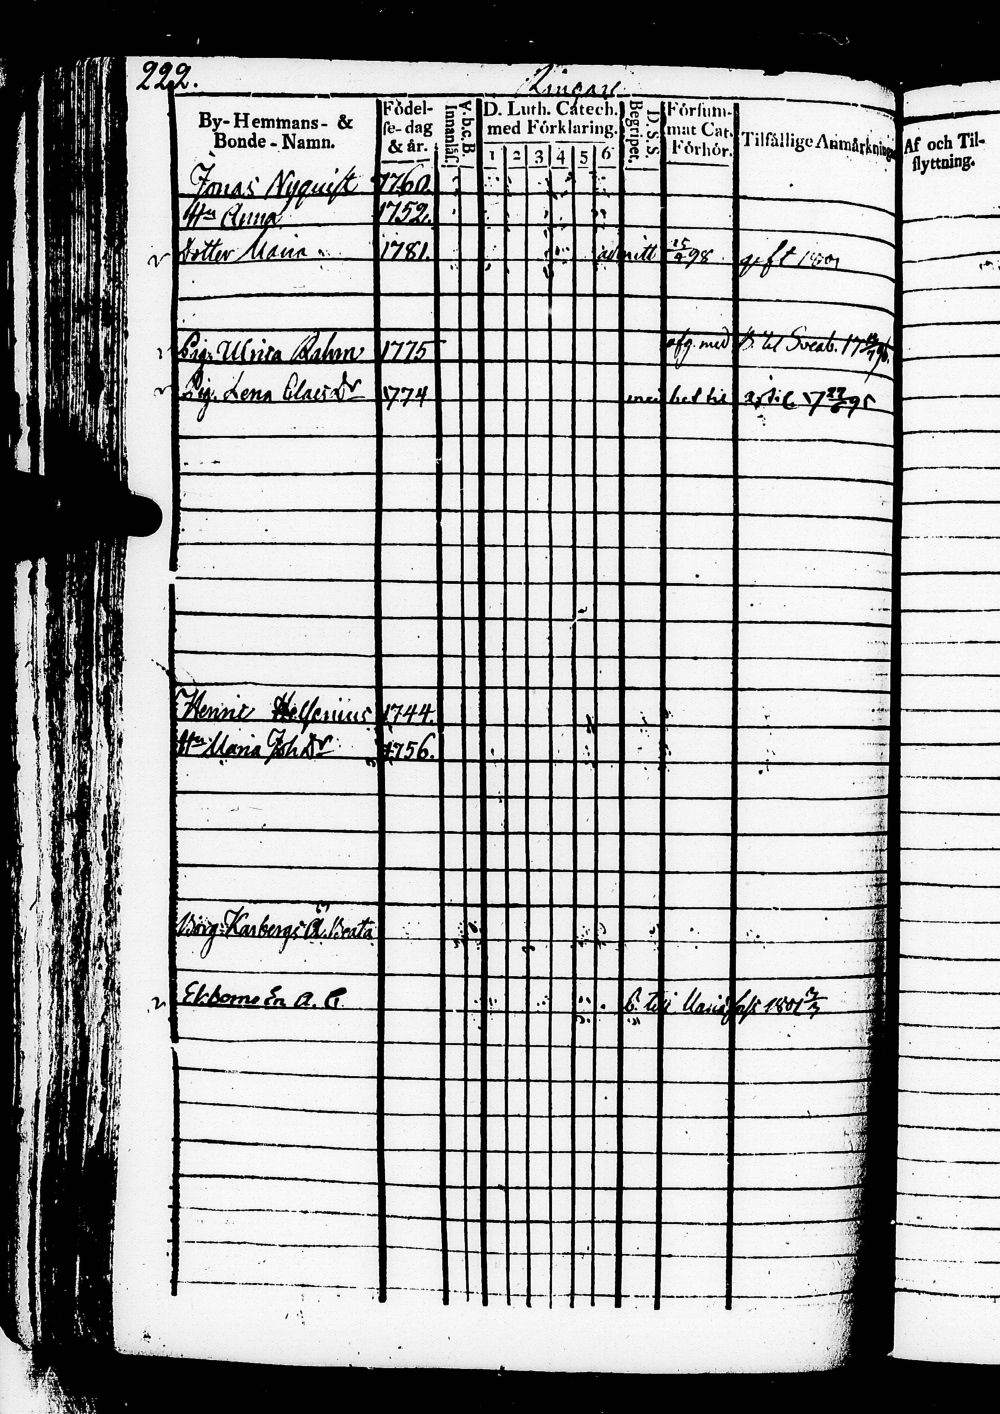 222.
Ringare
By-Hemmans- &
Bonde-Namn.
Födel-
se-dag
& år.
Innanläs.
A.b.c.B.
D. Luth. Catech.
med Förklaring.
1 2 3 4 5 6
Begripet.
D. S. S.
Försum-
mat Cat.
Förhör.
Tilfällige Anmärkning
Af och Til-
flyttning.
Jonas Nyquist 1760.
Hu Anna 1752.
Dotter Maria 1781. admitt 15/4 98 gift 1801
Pig. Ulrica Rahm 1775 afg. med B. til Sveab.
Pig. Lena Claes Dr 1774
Henric Helsenius 1744.
Hu Maria Joh Dr 1756.
Borg. Karbergs Beata
Ekboms En A. C. B. till 1801